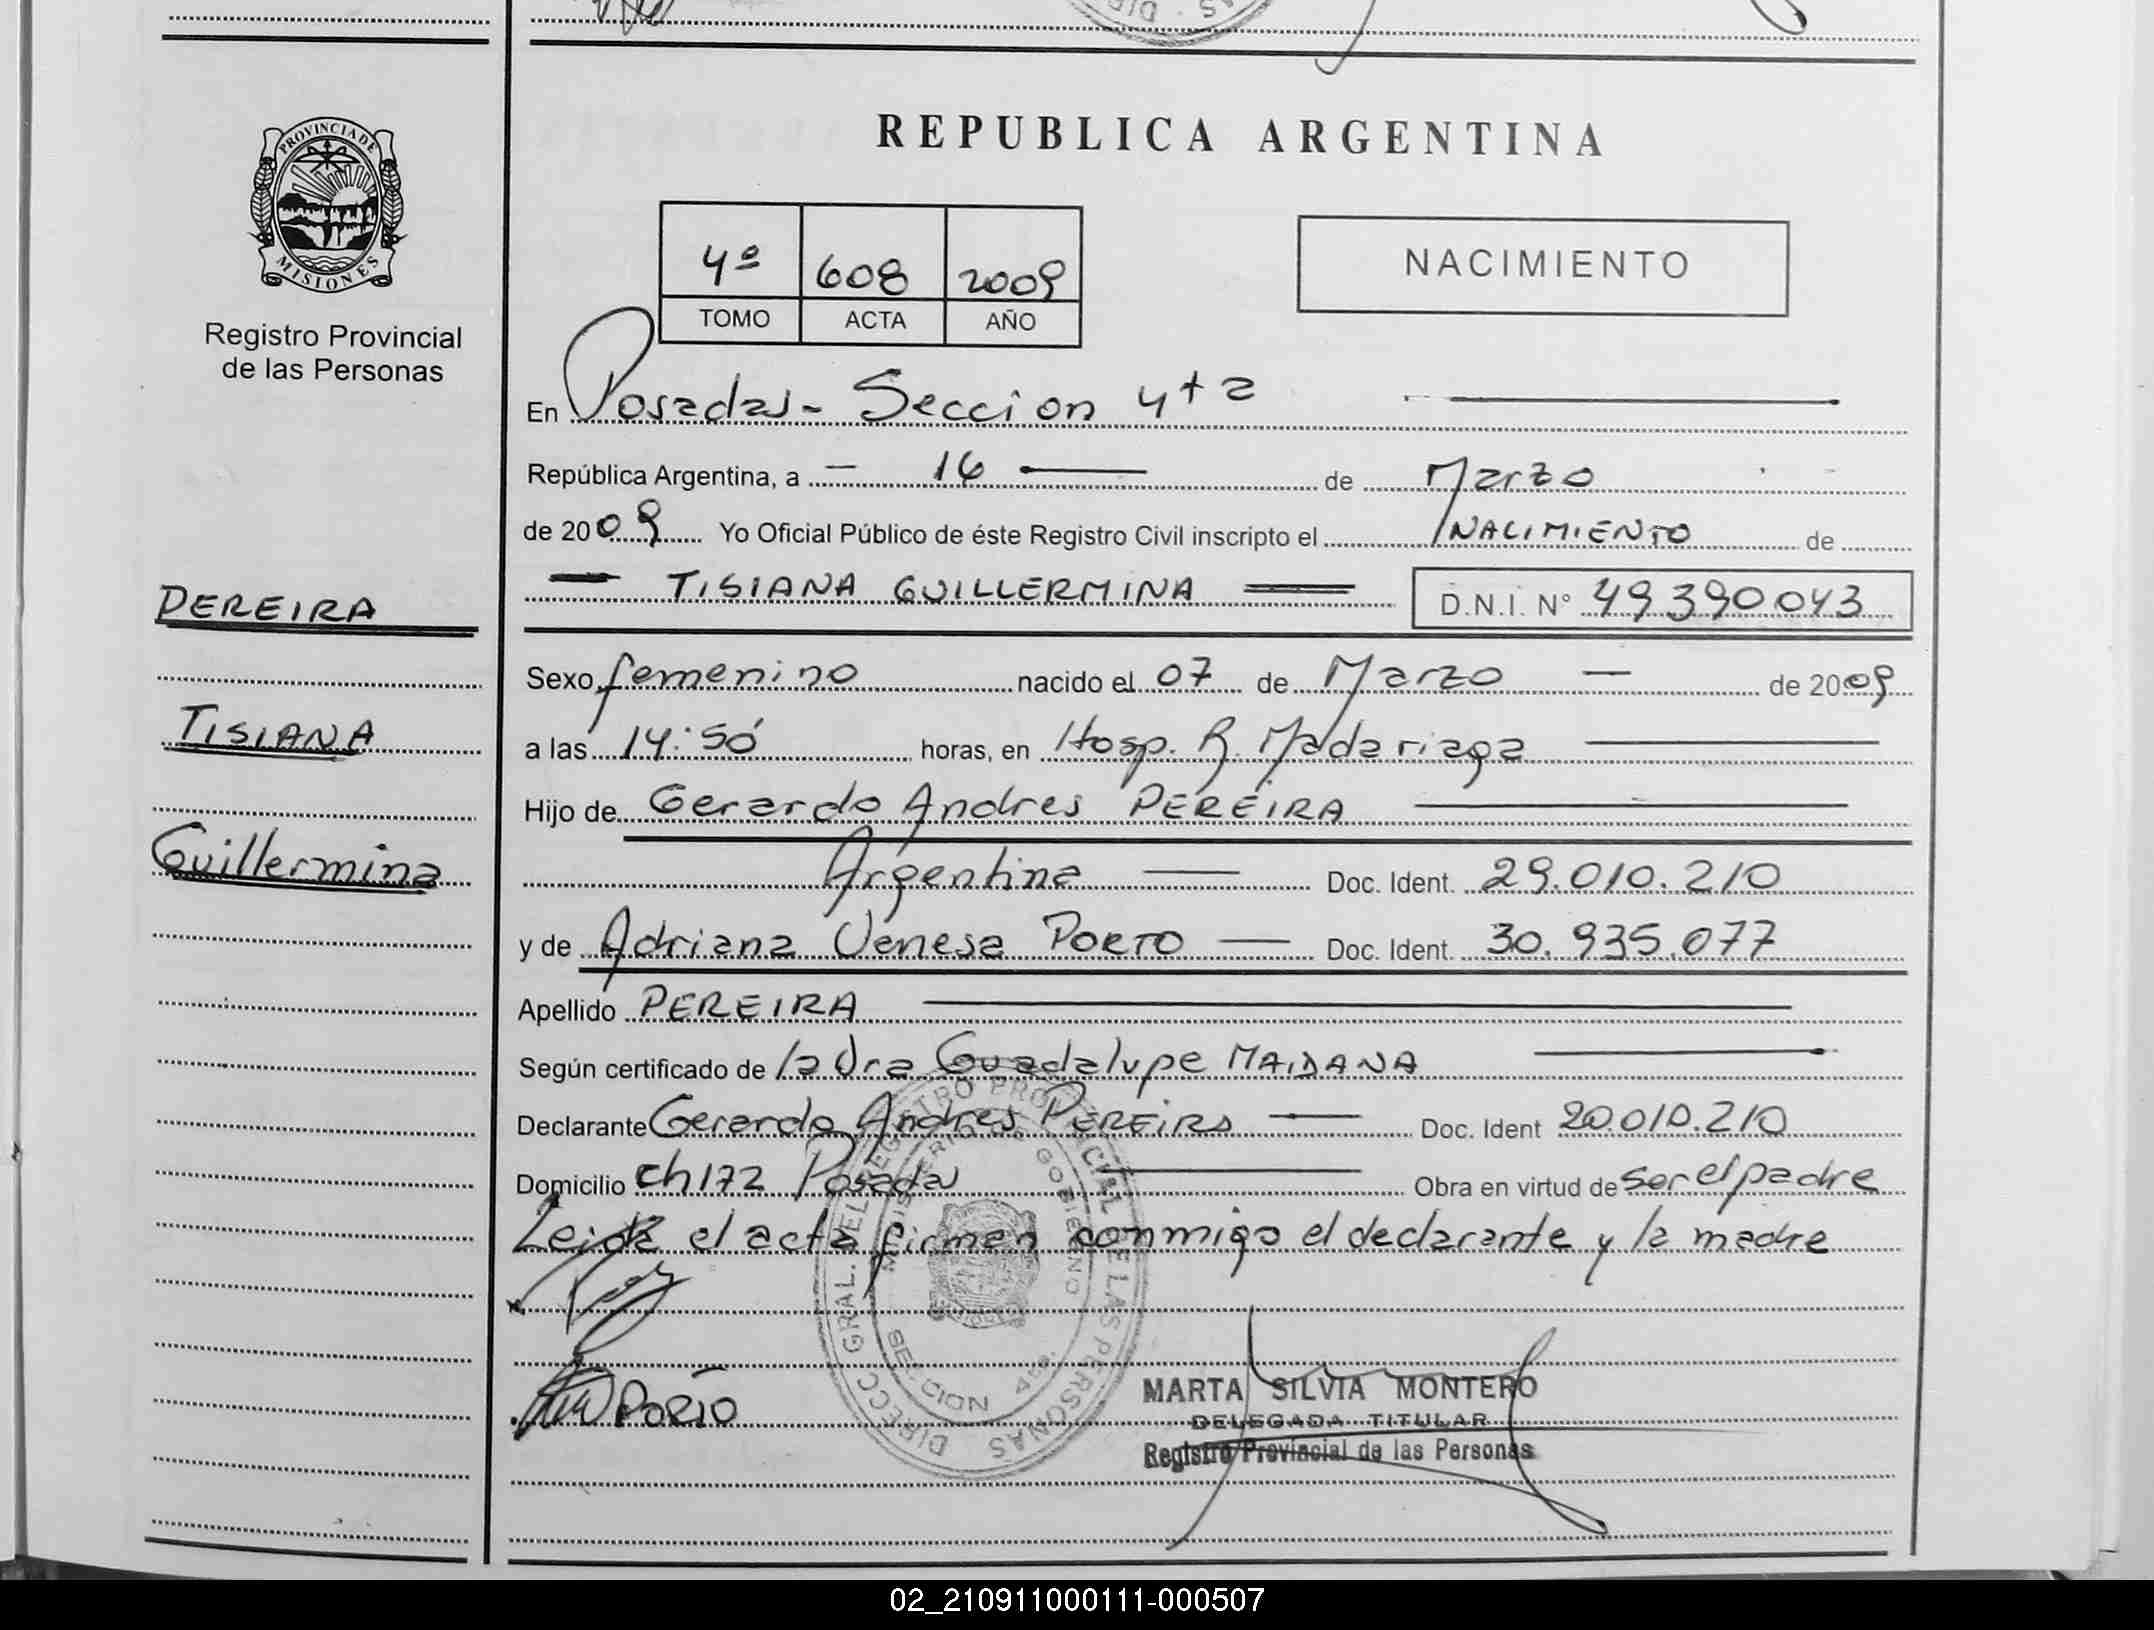 REPUBLICA ARGENTINA
PROVINCIA DE
MISIONES
Registro Provincial
de las Personas
4º 608 2009
TOMO ACTA AÑO
NACIMIENTO
En Posadas - Seccion 4ta
República Argentina, a 16 de Marzo
de 2009 Yo Oficial Público de éste Registro Civil inscripto el NACIMIENTO de
TISIANA GUILLERMINA D.N.I. Nº 49390043
PEREIRA
TISIANA
Guillermina
Sexo femenino nacido el 07 de Marzo de 2009
a las 14:50 horas, en Hosp. R. Madariaga
Hijo de Gerardo Andres PEREIRA
Argentina Doc. Ident. 29.010.210
y de Adriana Venesa PORTO Doc. Ident. 30.935.077
Apellido PEREIRA
Según certificado de la Dra Guadalupe MAIDANA
Declarante Gerardo Andres PEREIRA Doc. Ident 20.010.210
Domicilio Ch 172 Posadas Obra en virtud de ser el padre
Leida el acta firman conmigo el declarante y la madre
PORTO
DIRECC. GRAL. DEL REGISTRO PROVINCIAL DE LAS PERSONAS
MINISTERIO DE GOBIERNO
SECCION 4ta.
MARTA SILVIA MONTERO
DELEGADA TITULAR
Registro Provincial de las Personas
02_210911000111-000507